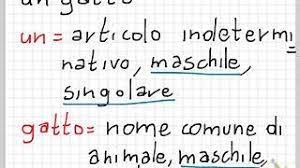 un gatto
un = articolo indetermi
nativo, maschile,
singolare
gatto = nome comune di
animale, maschile,